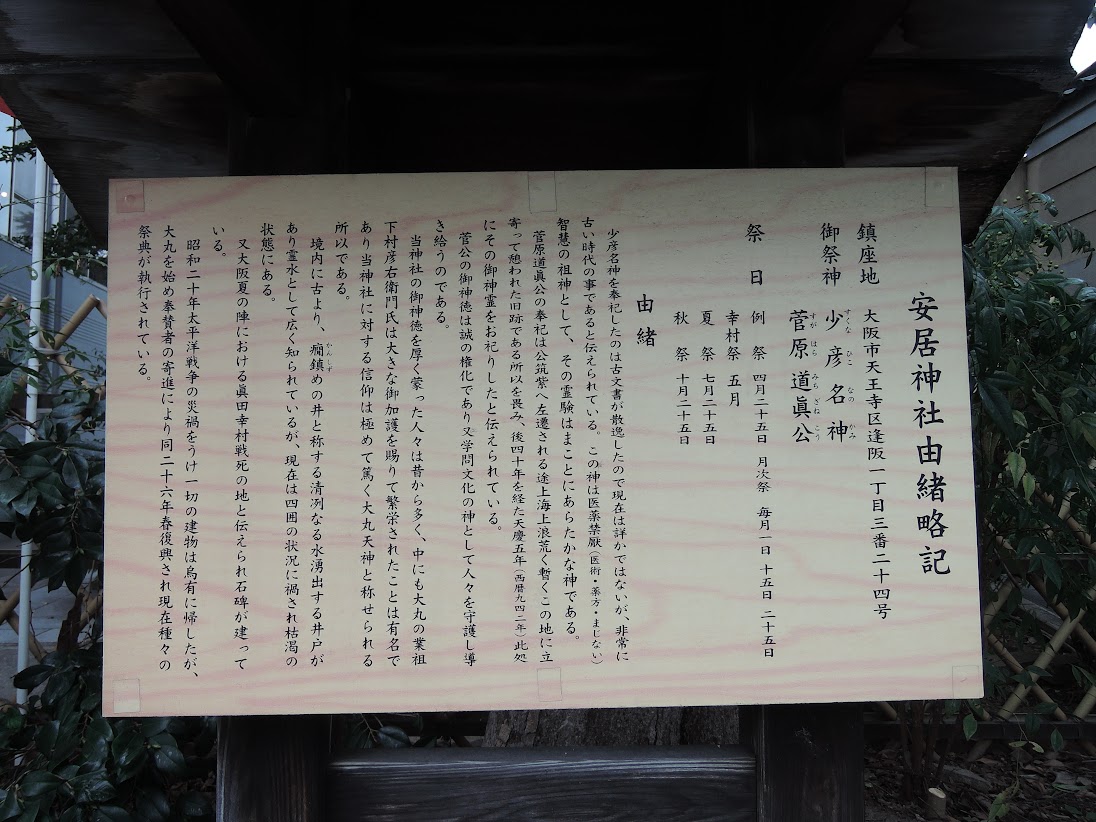 安居神社由緒略記
鎮座地　大阪市天王寺区逢阪一丁目三番二十四号
御祭神　少彦名神
すくな　ひこ　なの　かみ
菅原道眞公
すが　はら　みちざね　こう
祭日　例祭　四月二十五日　月次祭　毎月一日　十五日　二十五日
幸村祭　五月
夏祭　七月二十五日
秋祭　十月二十五日
由緒
少彦名神を奉祀したのは古文書が散逸したので現在は詳かではないが、非常に
古い時代の事であると伝えられている。この神は医薬禁厭（医術・薬方・まじない）
智慧の祖神として、その霊験はまことにあらたかな神である。
菅原道眞公の奉祀は公筑紫へ左遷される途上海上浪荒く暫くこの地に立
寄って憩われた旧跡である所以を畏み、後四十年を経た天慶五年（西暦九四二年）此処
にその御神霊をお祀りしたと伝えられている。
菅公の御神徳は誠の権化であり又学問文化の神として人々を守護し導
き給うのである。
当神社の御神徳を厚く蒙った人々は昔から多く、中にも大丸の業祖
下村彦右衛門氏は大きな御加護を賜りて繁栄されたことは有名で
あり当神社に対する信仰は極めて篤く大丸天神と称せられる
所以である。
境内に古より、癇鎮めの井と称する清冽なる水湧出する井戸が
かんしず
あり霊水として広く知られているが、現在は四囲の状況に禍され枯渇の
状態にある。
又大阪夏の陣における眞田幸村戦死の地と伝えられ石碑が建って
いる。
昭和二十年太平洋戦争の災禍をうけ一切の建物は烏有に帰したが、
大丸を始め奉賛者の寄進により同二十六年春復興され現在種々の
祭典が執行されている。